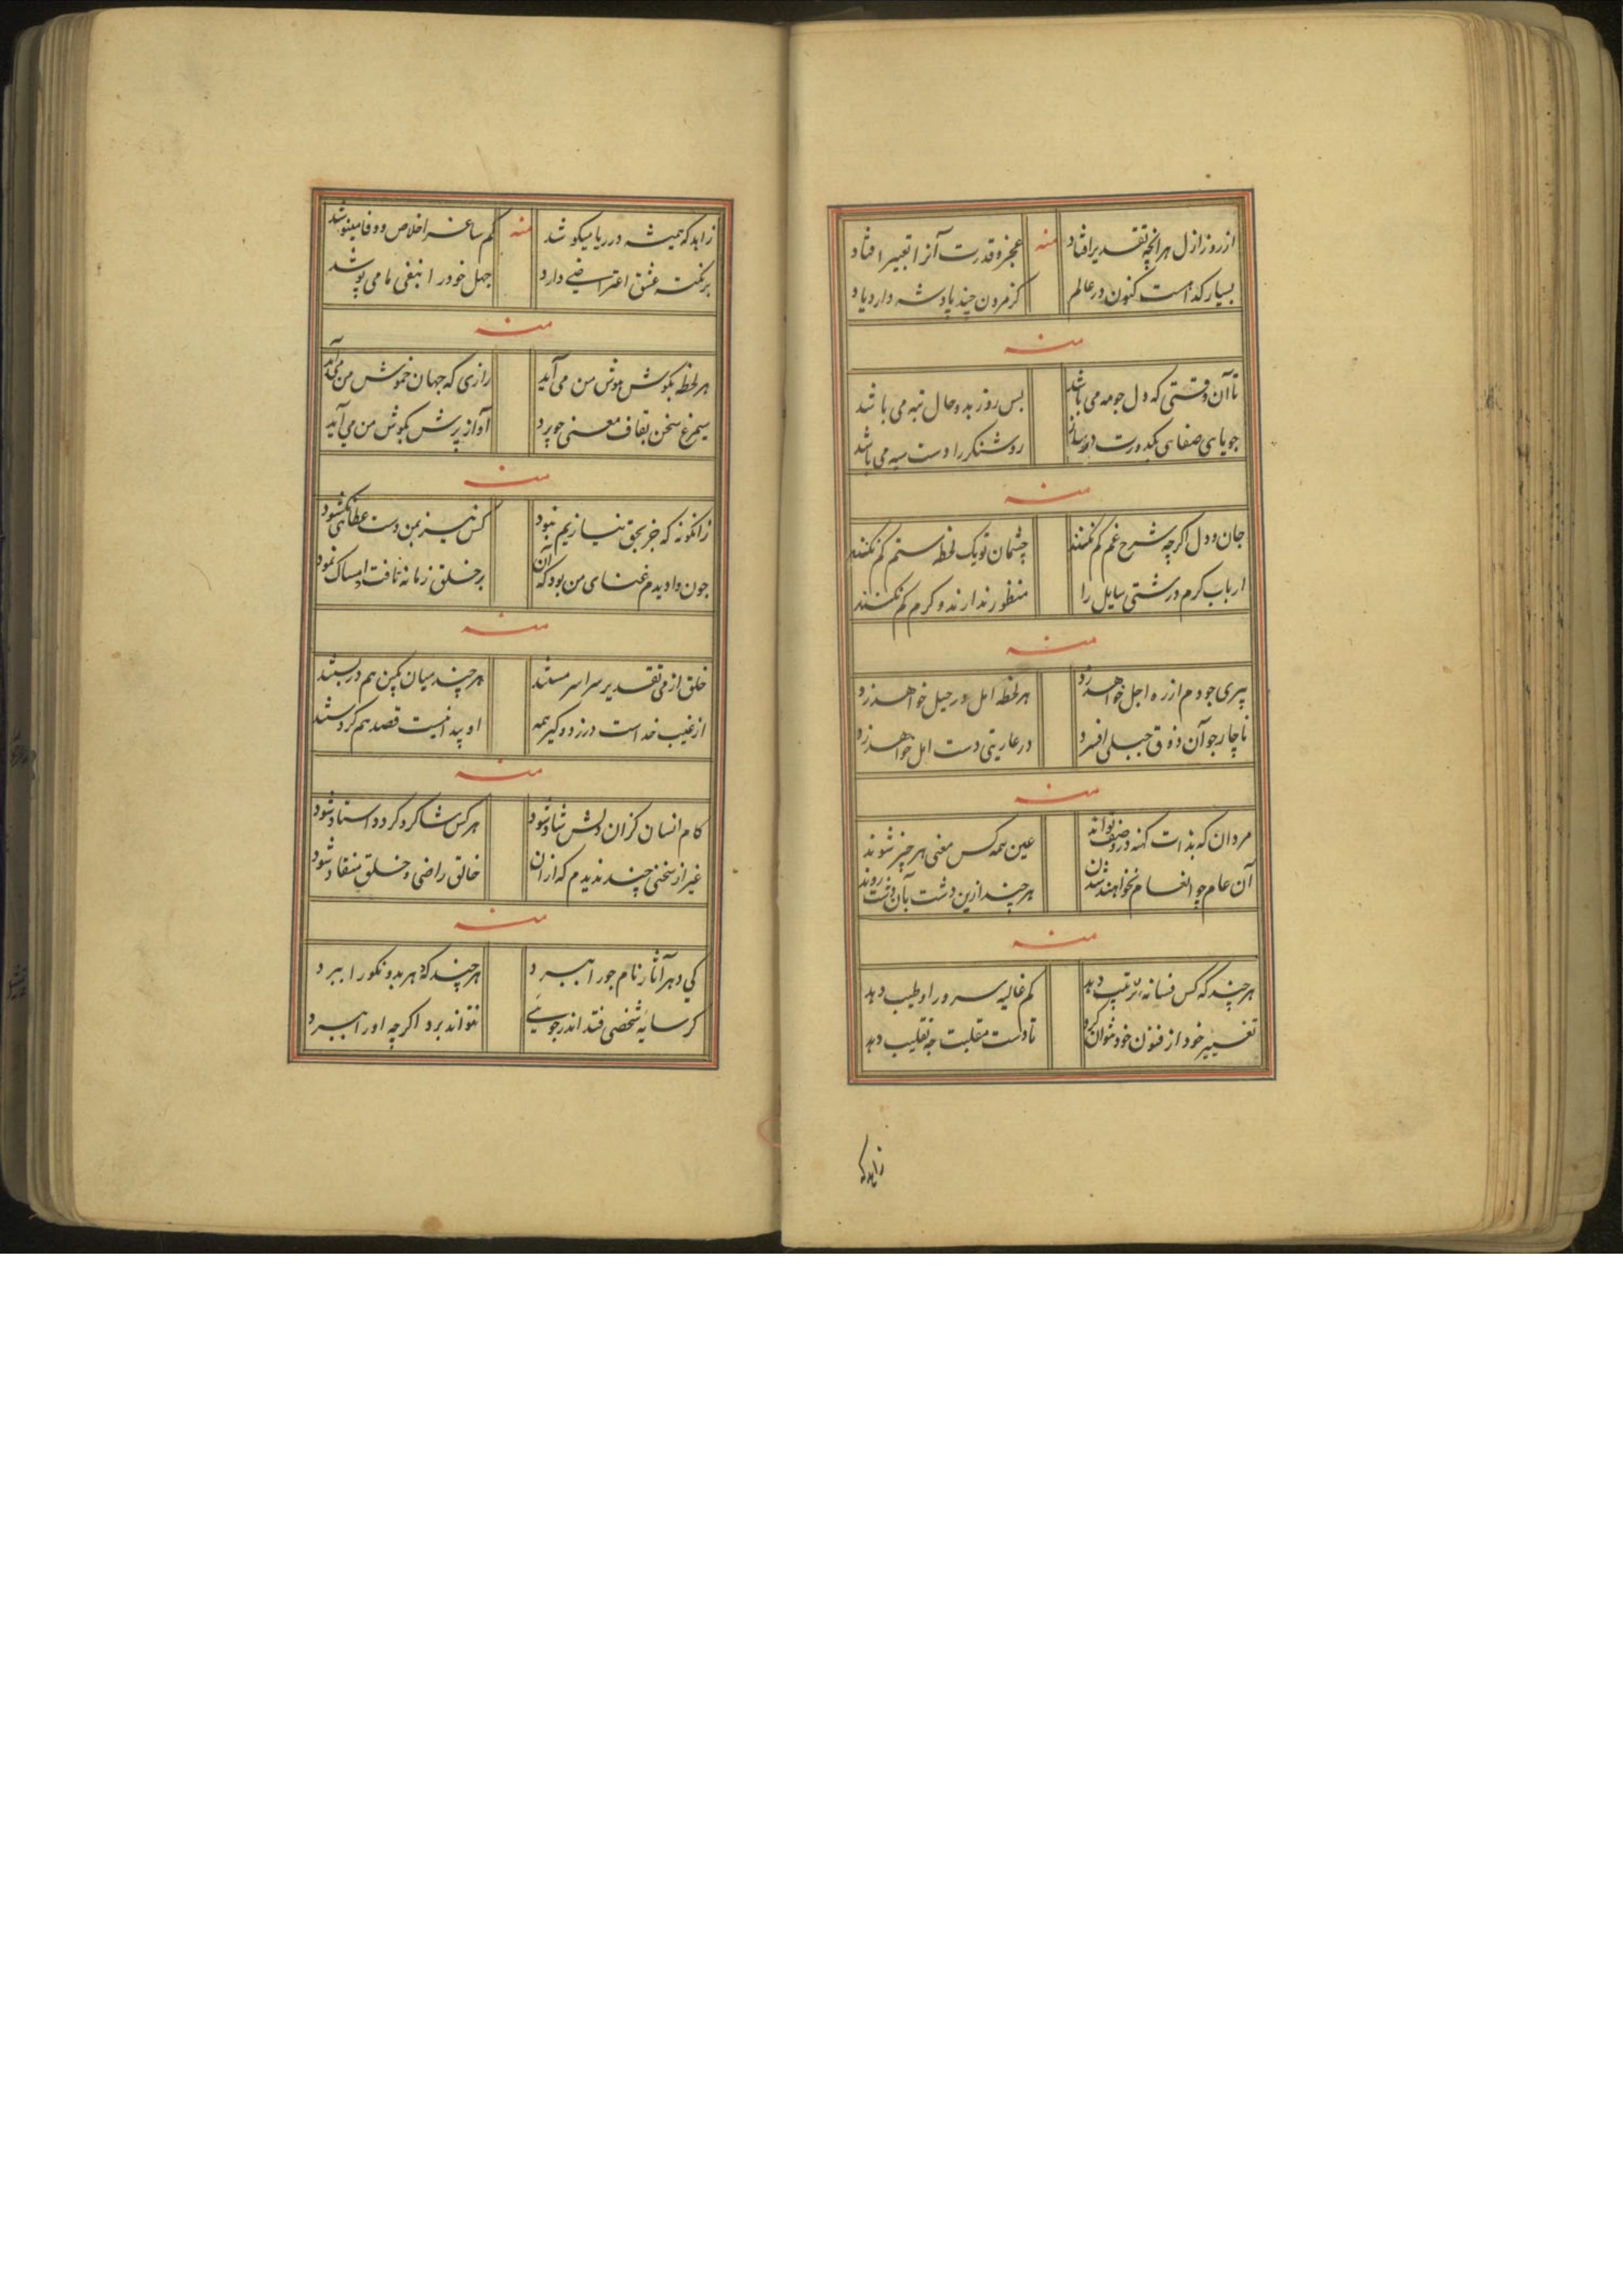 از روز ازل هر آنچه تقدیر افتاد منه عجز و قدرت آنرا تعبیر افتاد
بسیار کداست کنون در عالم کز مردن چند پادشه دارد یاد
منه
تا آن وقتی که دل جو مه می باشد بس روز بد و حال تبه می باشد
جویای صفا می کدورت روشنگر را دست سیه می باشد
منه
جان و دل اکرچه شرح غم کم نکنند چشمان تو یک لحظه ستم کم نکنند
ارباب کرم درشتی سایل را منظور ندارند و کرم کم نکنند
منه
پیری جو دم از ره اجل خواهد زد هر لحظه امل در حیل خواهد زد
ناچار جو آن ذوق جبلی افسرد در عاریتی دست امل خواهد زد
منه
مردان که بذات کهنه عین همه کس معنی هر چیز شوند
آن عام چو انعام نخواهند شدن هر چند ازین دشت بآن دشت روند
منه
هر چند که کس فسانه ترتیب دهد کم غالیه سرور او طیب دهد
تغییر خود از فنون خود نتوان کرد تا دست مقلبت چه تقلیب دهد
زاهد که
زاهد که همیشه در ریا میکوشد منه کم ساغر اخلاص و وفا مینوشد
بر نکته عشق اعتراضی دارد جهل خود را بنفی ما می پوشد
منه
هر لحظه بکوش هوش من می آید رازی که جهان خموش من می آید
سیمرغ سخن بقاف معنی جو پرد آواز پرش بکوش من می آید
منه
زانکونه که جز بحق نیازیم نبود کس نیز بمن دست عطائی نکشود
جون وادیدم غنای من بود که آن بر خلق زمانه تافت امساک نمود
منه
خلق از می تقدیر سراسر مستند هر چند میان بکین هم در بستند
از غیب خداست درزد و کیر همه او پیدا نیست قصد هم کردستند
منه
کام انسان کزان دلش شاد شود هر کس شاکرد کردد استاد شود
غیر از سخنی چند ندیدم که از ان خالق راضی و خلق منقاد شود
منه
کی دهر آثار نام جو را ببرد هر چند که هر بد و نکو را ببرد
کر سایه شخصی فتد اندر جوئی نتواند برد اکرچه او را ببرد